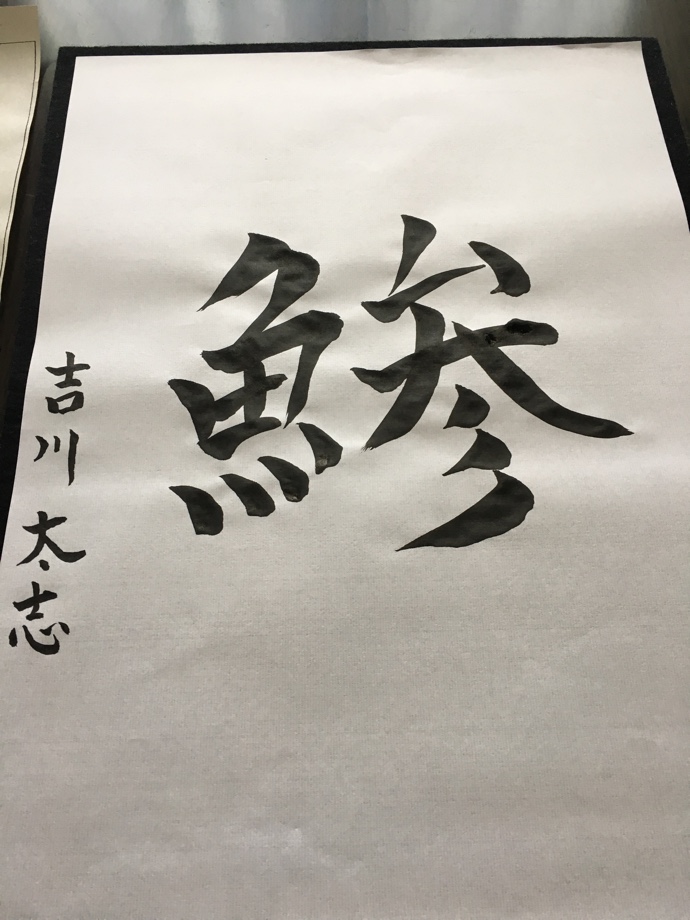 鯵
吉川 太志